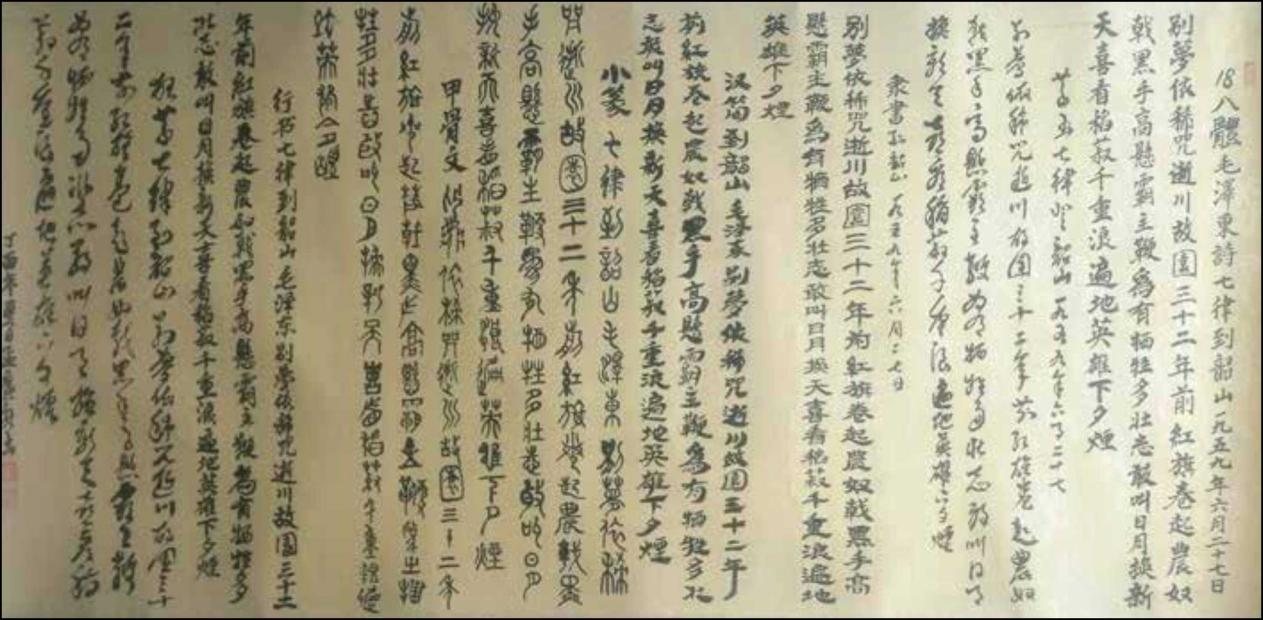 18八體毛澤東詩七律到韶山一九五九年六月二十七日
别夢依稀咒逝川故園三十二年前紅旗卷起農奴
戟黑手高懸霸主鞭為有牺牲多壮志敢叫日月換新
天喜看稻菽千重浪遍地英雄下夕煙
草书七律到韶山一九五九年六月二十七
别梦依稀咒逝川故園三十二年前红旗卷起農奴
戟黑手高懸霸主鞭为有牺牲多壮志敢叫日月
換新天喜看稻菽千重浪遍地英雄下夕煙
隶書到韶山一九五九年六月二七日
别夢依稀咒逝川故園三十二年前紅旗卷起農奴戟黑手高
懸霸主鞭為有牺牲多壮志敢叫日月換天喜看稻菽千重浪遍地
英雄下夕煙
汉简到韶山毛泽东别夢依稀咒逝川故園三十二年
前紅旗卷起農奴戟黑手高懸霸主鞭為有牺牲多壮
志敢叫日月換新天喜看稻菽千重浪遍地英雄下夕煙
小篆七律到韶山毛澤東别夢依稀
咒逝川故園三十二年前紅旗卷起農戟黑
手高懸霸主鞭為有牺牲多壮志敢叫日月
換新天喜看稻菽千重浪遍地英雄下夕煙
甲骨文别夢依稀咒逝川故園三十二年
前紅旗卷起農奴戟黑手高懸霸主鞭為有牺
牲多壮志敢叫日月換新天喜看稻菽千重浪遍
地英雄下夕煙
行书七律到韶山毛泽东别夢依稀咒逝川故園三十二
年前紅旗卷起農奴戟黑手高懸霸主鞭為有牺牲多
壮志敢叫日月換新天喜看稻菽千重浪遍地英雄下夕煙
狂草七律到韶山别梦依稀咒逝川故園三十
二年前红旗卷起農奴戟黑手高懸霸主鞭
为有牺牲多壮志敢叫日月換新天喜看稻
菽千重浪遍地英雄下夕煙
丁酉年